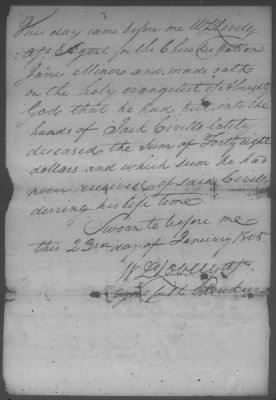 This day came before me Wm Lovely
asst Agent for the Cherokee Nation
James Minor and made oath
on the holy evangelist of Almighty
God that he had put into the
hands of Jack Civills lately
deceased the Sum of Forty eight
dollars and which sum he had
never received of said Civills
during his life time
Sworn to before me
this 23rd day of January 1805
W L Lovely
Cherokees